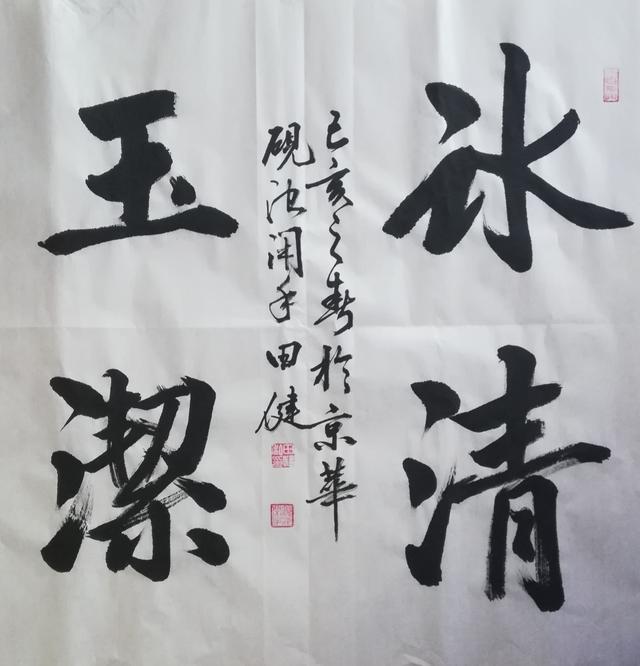 冰清
玉潔
己亥之春於京華
硯池閑手田健